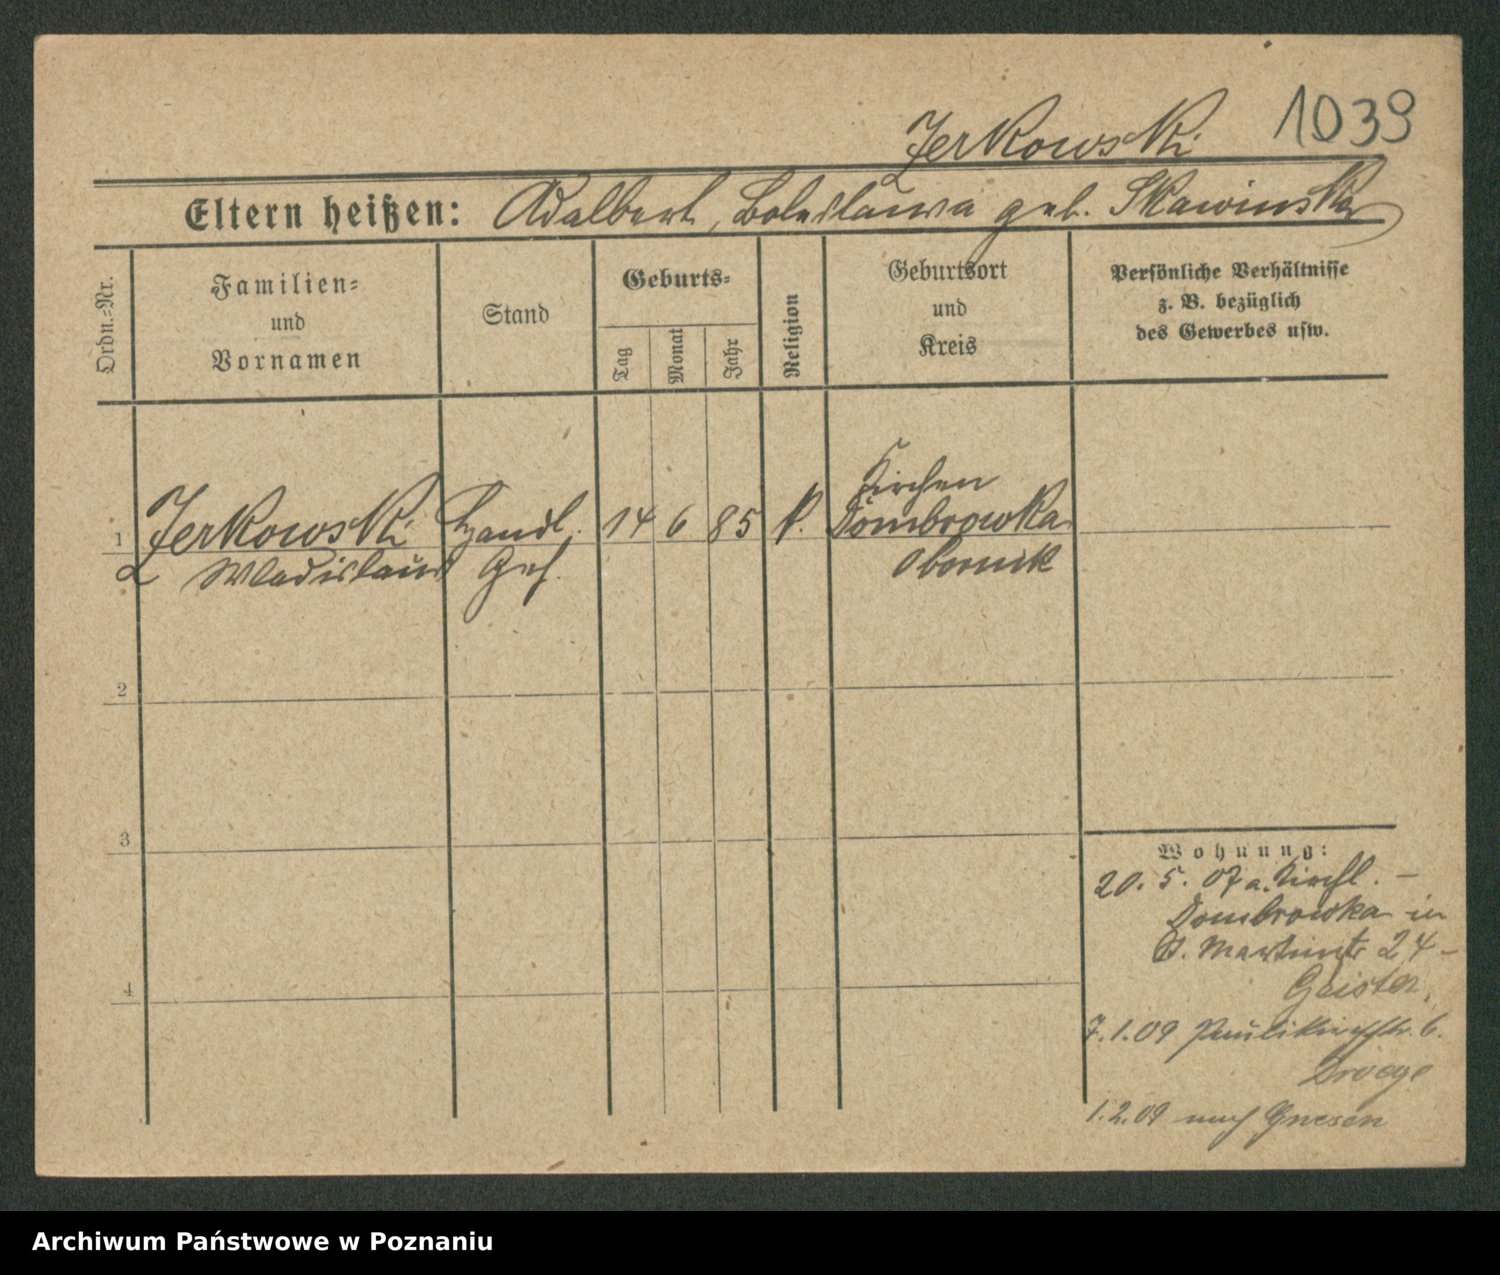 Jerkowski 1039
Eltern heißen: Adalbert, Boleslawa geb. Skawinska
Ordn.-Nr.
Familien-
und
Vornamen
Stand
Geburts-
Tag
Monat
Jahr
Religion
Geburtsort
und
Kreis
Persönliche Verhältnisse
z. B. bezüglich
des Gewerbes usw.
Kirchen
1 Jerkowski Handl. 14 6 85 k. Dombrowka
Wladislaus Geh. Obornik
2
3
4
Wohnung:
20. 5. 07 a. Kirchl. -
Dombrowka in
St. Martinstr 24 -
Geister.
7.1.09 Paulikirchstr. 6.
Droege
1.2.09 nach Gnesen
Archiwum Państwowe w Poznaniu